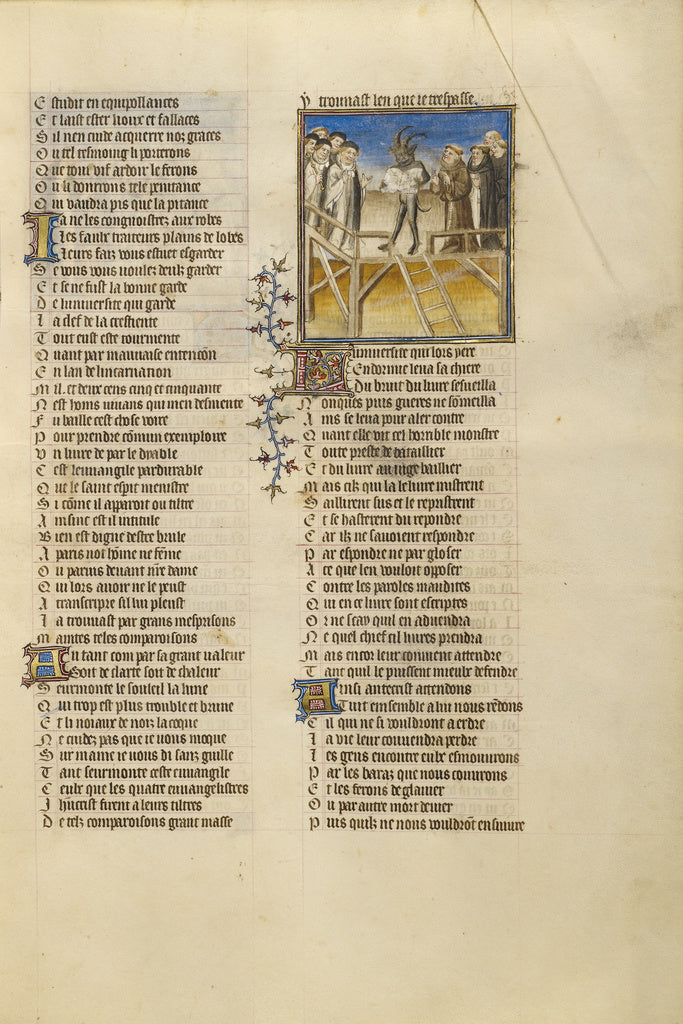 E studit en equipollances
E t laist ester voux et fallaces
S il nen cuide acquerre noz graces
O u tel tesmoing li porterons
Q ue tout vif ardoir le ferons
O u li donrrons tele penitance
Q ui vaudra pis que la pitance
I a ne les congnoistrez aux robes
L es faulx traiteurs plains de lobes
L eurs faiz vous estuet esgarder
S e vous vous voulez deulz garder
E t se ne fust la bonne garde
D e luniversite qui garde
L a clef de la crestiente
T out eust este tourmente
Q uant par mauvaise entencon
E n lan de lincarnation
M il et deux cens cinq et cinquante
N est homs vivans qui men desmente
F u baille cest chose voire
P our prendre cōmun exemploire
U n livre de par le dyable
C est leuvangile pardurable
Q ue le saint esp̄it menistre
S i cōme il apparoit ou tiltre
A insint est il intitule
B ien est digne destre brule
A paris not hōme ne fēme
O u parvis devant nr̄e dame
Q ui lors avoir ne le peust
A transcripre sil lui pleust
L a trouvast par grans mesprisons
M aintes teles comparoisons
A utant com par sa grant valeur
S oit de clarte soit de chaleur
S eurmonte le souleil la lune
Q ui trop est plus trouble et brune
E t li noiaux de noiz la coque
N e cuidez pas que ie vous moque
S ur mame ie vous di sanz guille
T ant seurmonte ceste euvangile
C eulx que les quatre euvangelistres
I hūcrist firent a leurs tiltres
D e telz comparoisons grant masse
Y trouvast len que ie trespasse
L universite qui lors yere
E ndormie leva sa chiere
D u bruit du livre sesveilla
N onques puis gueres ne someilla
A ins se leva pour aler contre
Q uant elle vit cel horrible monstre
T oute preste de bataillier
E t du livre au iuge baillier
M ais cilz qui la le livre mistrent
S aillirent sus et le repristrent
E t se hasterent du repondre
C ar ilz ne savoient respondre
P ar espondre ne par gloser
A ce que len vouloit opposer
C ontre les paroles maudites
Q ui en ce livre sont escriptes
O r ne scay quil en advendra
N e quel chief cil livres prendra
M ais encor leur convient attendre
T ant quil le puissent mieulx defendre
A insi antecrist attendons
T uit ensemble a lui nous rēdons
C il qui ne si vouldront aerdre
L a vie leur convendra perdre
L es gens encontre eulx esmouvrons
P ar les baraz que nous couvrons
E t les ferons de glaivier
O u par autre mort devier
P uis quilz ne nous vouldrōt ensuivre